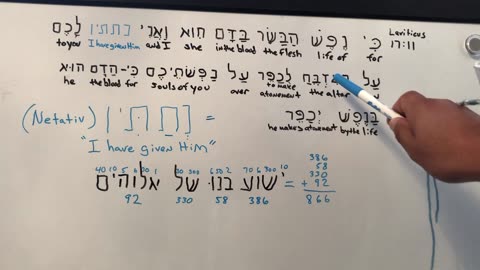 Leviticus 17:11
כִּי נֶפֶשׁ הַבָּשָׂר בַּדָּם הוא וַאֲנִי [נתתיו] לָכֶם
to you I have given Him and I she in the blood the flesh life of for
עַל לְכַפֵּר עַל נַפְשֹׁתֵיכֶם כִּי-הַדָּם הוּא
he the blood for souls of you over to make atonement the altar
בַּנֶּפֶשׁ יְכַפֵּר
he makes atonement by the life
(Netativ) [נְתַתִּיו]
"I have given Him"
40 10 5 6 30 1 30 300 6 50 2 70 6 300 10
ישוע בנו של אלוהים =
92 330 58 386
386
58
330
+ 92
866